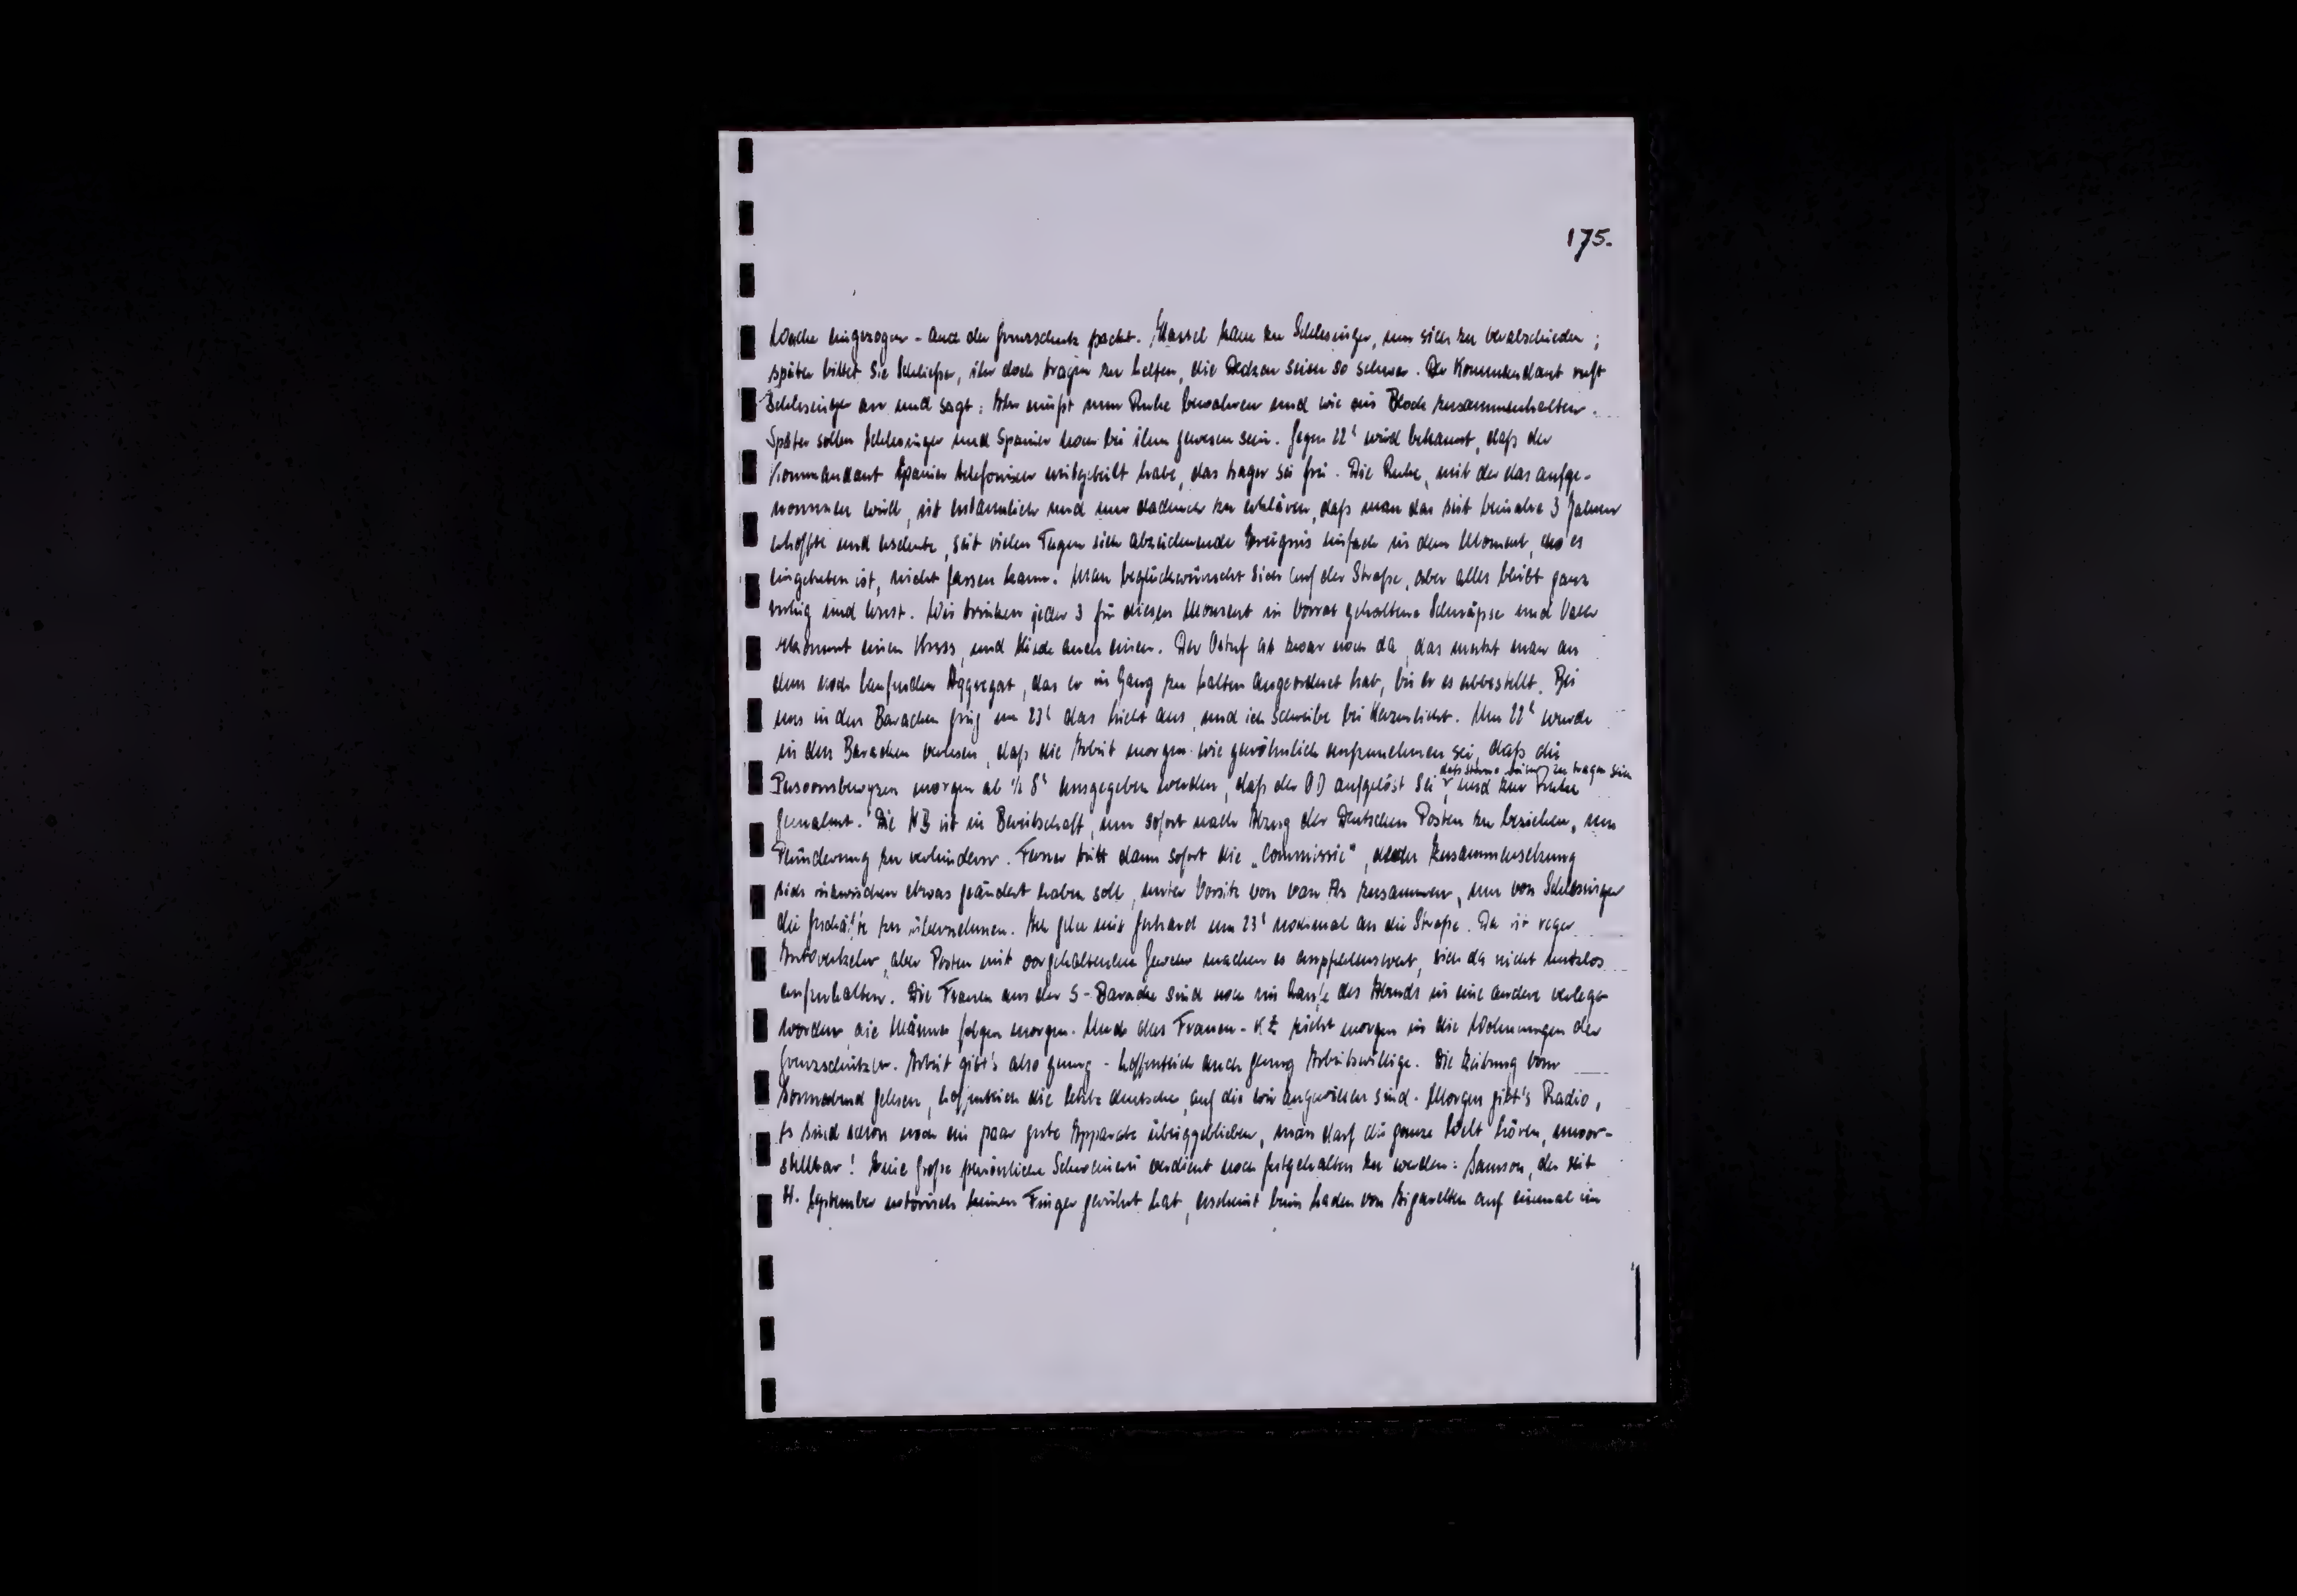 175.
Wache eingezogen - auch der Grenzschutz packt. Hassel kam zu Schlesinger, um sich zu verabschieden;
später bittet sie Schließer, ihr doch tragen zu helfen, die Decken seien so schwer. Der Kommandant ruft
Schlesinger an und sagt: Ihr müßt nun Ruhe bewahren und wie ein Block zusammenhalten.
Später sollen Schlesinger und Spanier noch bei ihm gewesen sein. Gegen 22ʰ wird bekannt, daß der
Kommandant Spanier telefonisch mitgeteilt habe, das Lager sei frei. Die Ruhe, mit der das aufge-
nommen wird, ist erstaunlich und nur dadurch zu erklären, daß man das seit beinahe 3 Jahren
erhoffte und ersehnte, seit vielen Tagen sich abzeichnende Ereignis einfach in dem Moment, da es
eingetreten ist, nicht fassen kann. Man beglückwünscht sich auf der Straße, aber alles bleibt ganz
ruhig und ernst. Wir trinken jeder 3 für diesen Moment in Vorrat gehaltene Schnäpse und Vater
bekommt einen Kuss, und auch einen. Der Ostuf ist zwar noch da, das merkt man an
dem noch laufenden Aggregat, das er in Gang zu halten angeordnet hat, bis er es abbestellt. Bei
uns in den Baracken ging um 23ʰ das Licht aus, und ich schreibe bei Kerzenlicht. Um 22ʰ wurde
in den Baracken verlesen, daß die Arbeit morgen wie gewöhnlich aufzunehmen sei, daß die
Persoonsbewyzen morgen ab ½ 8ʰ ausgegeben werden, daß der OD aufgelöst sei, daß Sterne zu tragen sein und zur Ruhe
gemahnt. Die NB ist in Bereitschaft, um sofort nach Abzug der Deutschen Posten zu beziehen, um
Plünderung zu verhindern. Ferner tritt dann sofort die „Commissie“, deren Zusammensetzung
sich inzwischen etwas geändert haben soll, unter Vorsitz von van As zusammen, um von Schlesinger
die Geschäfte zu übernehmen. Ich gehe mit Gerhard um 23ʰ nochmal an die Straße. Da ist reger
Autoverkehr, aber Posten mit vorgehaltenem Gewehr machen es empfehlenswert, sich da nicht nutzlos
aufzuhalten. Die Frauen aus der S-Baracke sind noch im Laufe des Abends in eine andere verlegt
worden, die Männer folgen morgen. Und das Frauen-KZ zieht morgen in die Wohnungen der
Grenzschützer. Arbeit gibt's also genug - hoffentlich auch genug Arbeitswillige. Die Zeitung vom
Sonnabend gelesen, hoffentlich die letzte deutsche, auf die wir angewiesen sind. Morgen gibt's Radio,
es sind schon noch ein paar gute Apparate übriggeblieben, man darf die ganze Welt hören, unvor-
stellbar! Eine große persönliche Schweinerei verdient noch festgehalten zu werden: Samson, der seit
September notorisch keinen Finger gerührt hat, erscheint beim Laden von Zigaretten auf einmal im